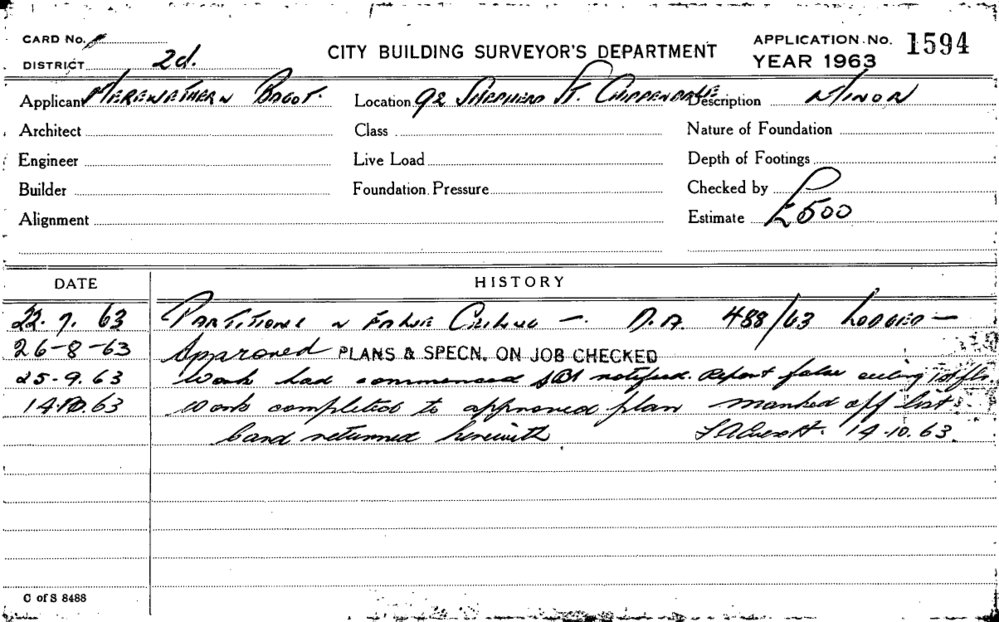 CARD No.
DISTRICT 2d.
CITY BUILDING SURVEYOR'S DEPARTMENT
APPLICATION No. 1594
YEAR 1963
Applicant Merewether & Bagot. Location 92 Shepherd St. Chippendale Description Minor
Architect Class Nature of Foundation
Engineer Live Load Depth of Footings
Builder Foundation Pressure Checked by
Alignment Estimate £500
DATE HISTORY
22.7.63 Partitions & False Ceiling — D.A. 488/63 Lodged —
26-8-63 Approved PLANS & SPECN. ON JOB CHECKED
25-9.63 Work had commenced notified. Report false ceiling 1st fl.
14.10.63 Work completed to approved plan marked off list
Card returned herewith 14.10.63.
C of S 8488